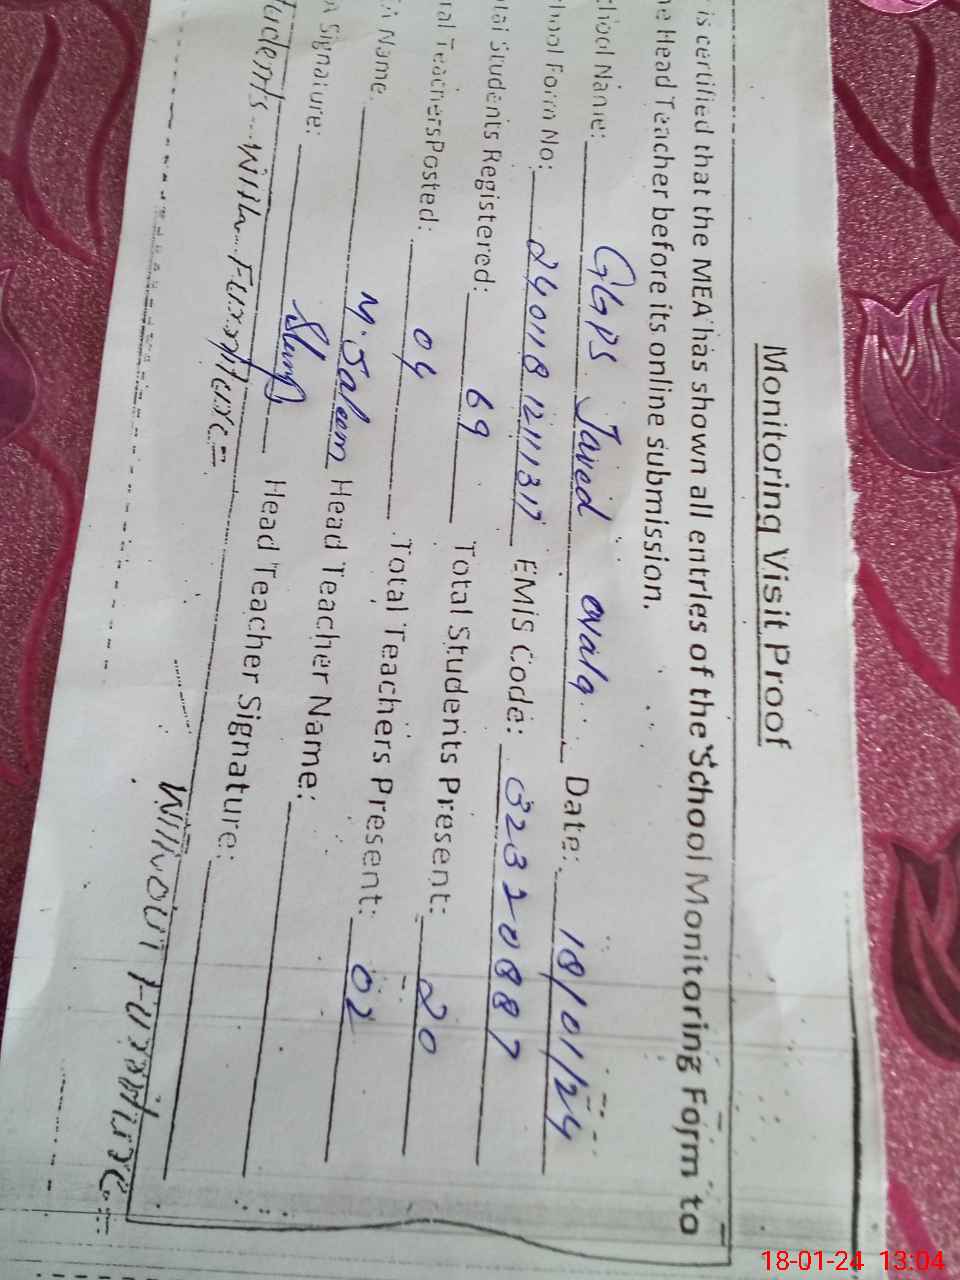 Monitoring Visit Proof
is certified that the MEA has shown all entries of the School Monitoring Form to
he Head Teacher before its online submission.
chool Name: GGPS Javed wala Date: 18/01/24
hool Form No: 240118 12111317 EMIS Code: 32320887
tal Students Registered: 69 Total Students Present: 20
tal Teachers Posted: 04 Total Teachers Present: 02
A Name M. Saleem Head Teacher Name:
A Signature: Head Teacher Signature:
tudents With Furniture: Without Furniture:
18-01-24 13:04